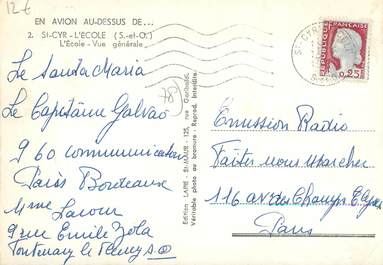 12 €
EN AVION AU-DESSUS DE...
2. ST-CYR-L'ECOLE (S.-et-O.)
L'École - Vue générale
Le Santa Maria
Le Capitaine Galvao
960 communications
Paris Bordeaux
Mme Lacour
9 rue Emile Zola
Fontenay le Fleury S.O
(78)
Edition LAPIE, St-MAUR - 125, rue Garibaldi.
Véritable photo au bromure - Reprod. interdite.
ST-CYR
RÉPUBLIQUE FRANÇAISE
0,25
Emission Radio
Faites nous marcher
116 av des Champs Elysées
Paris